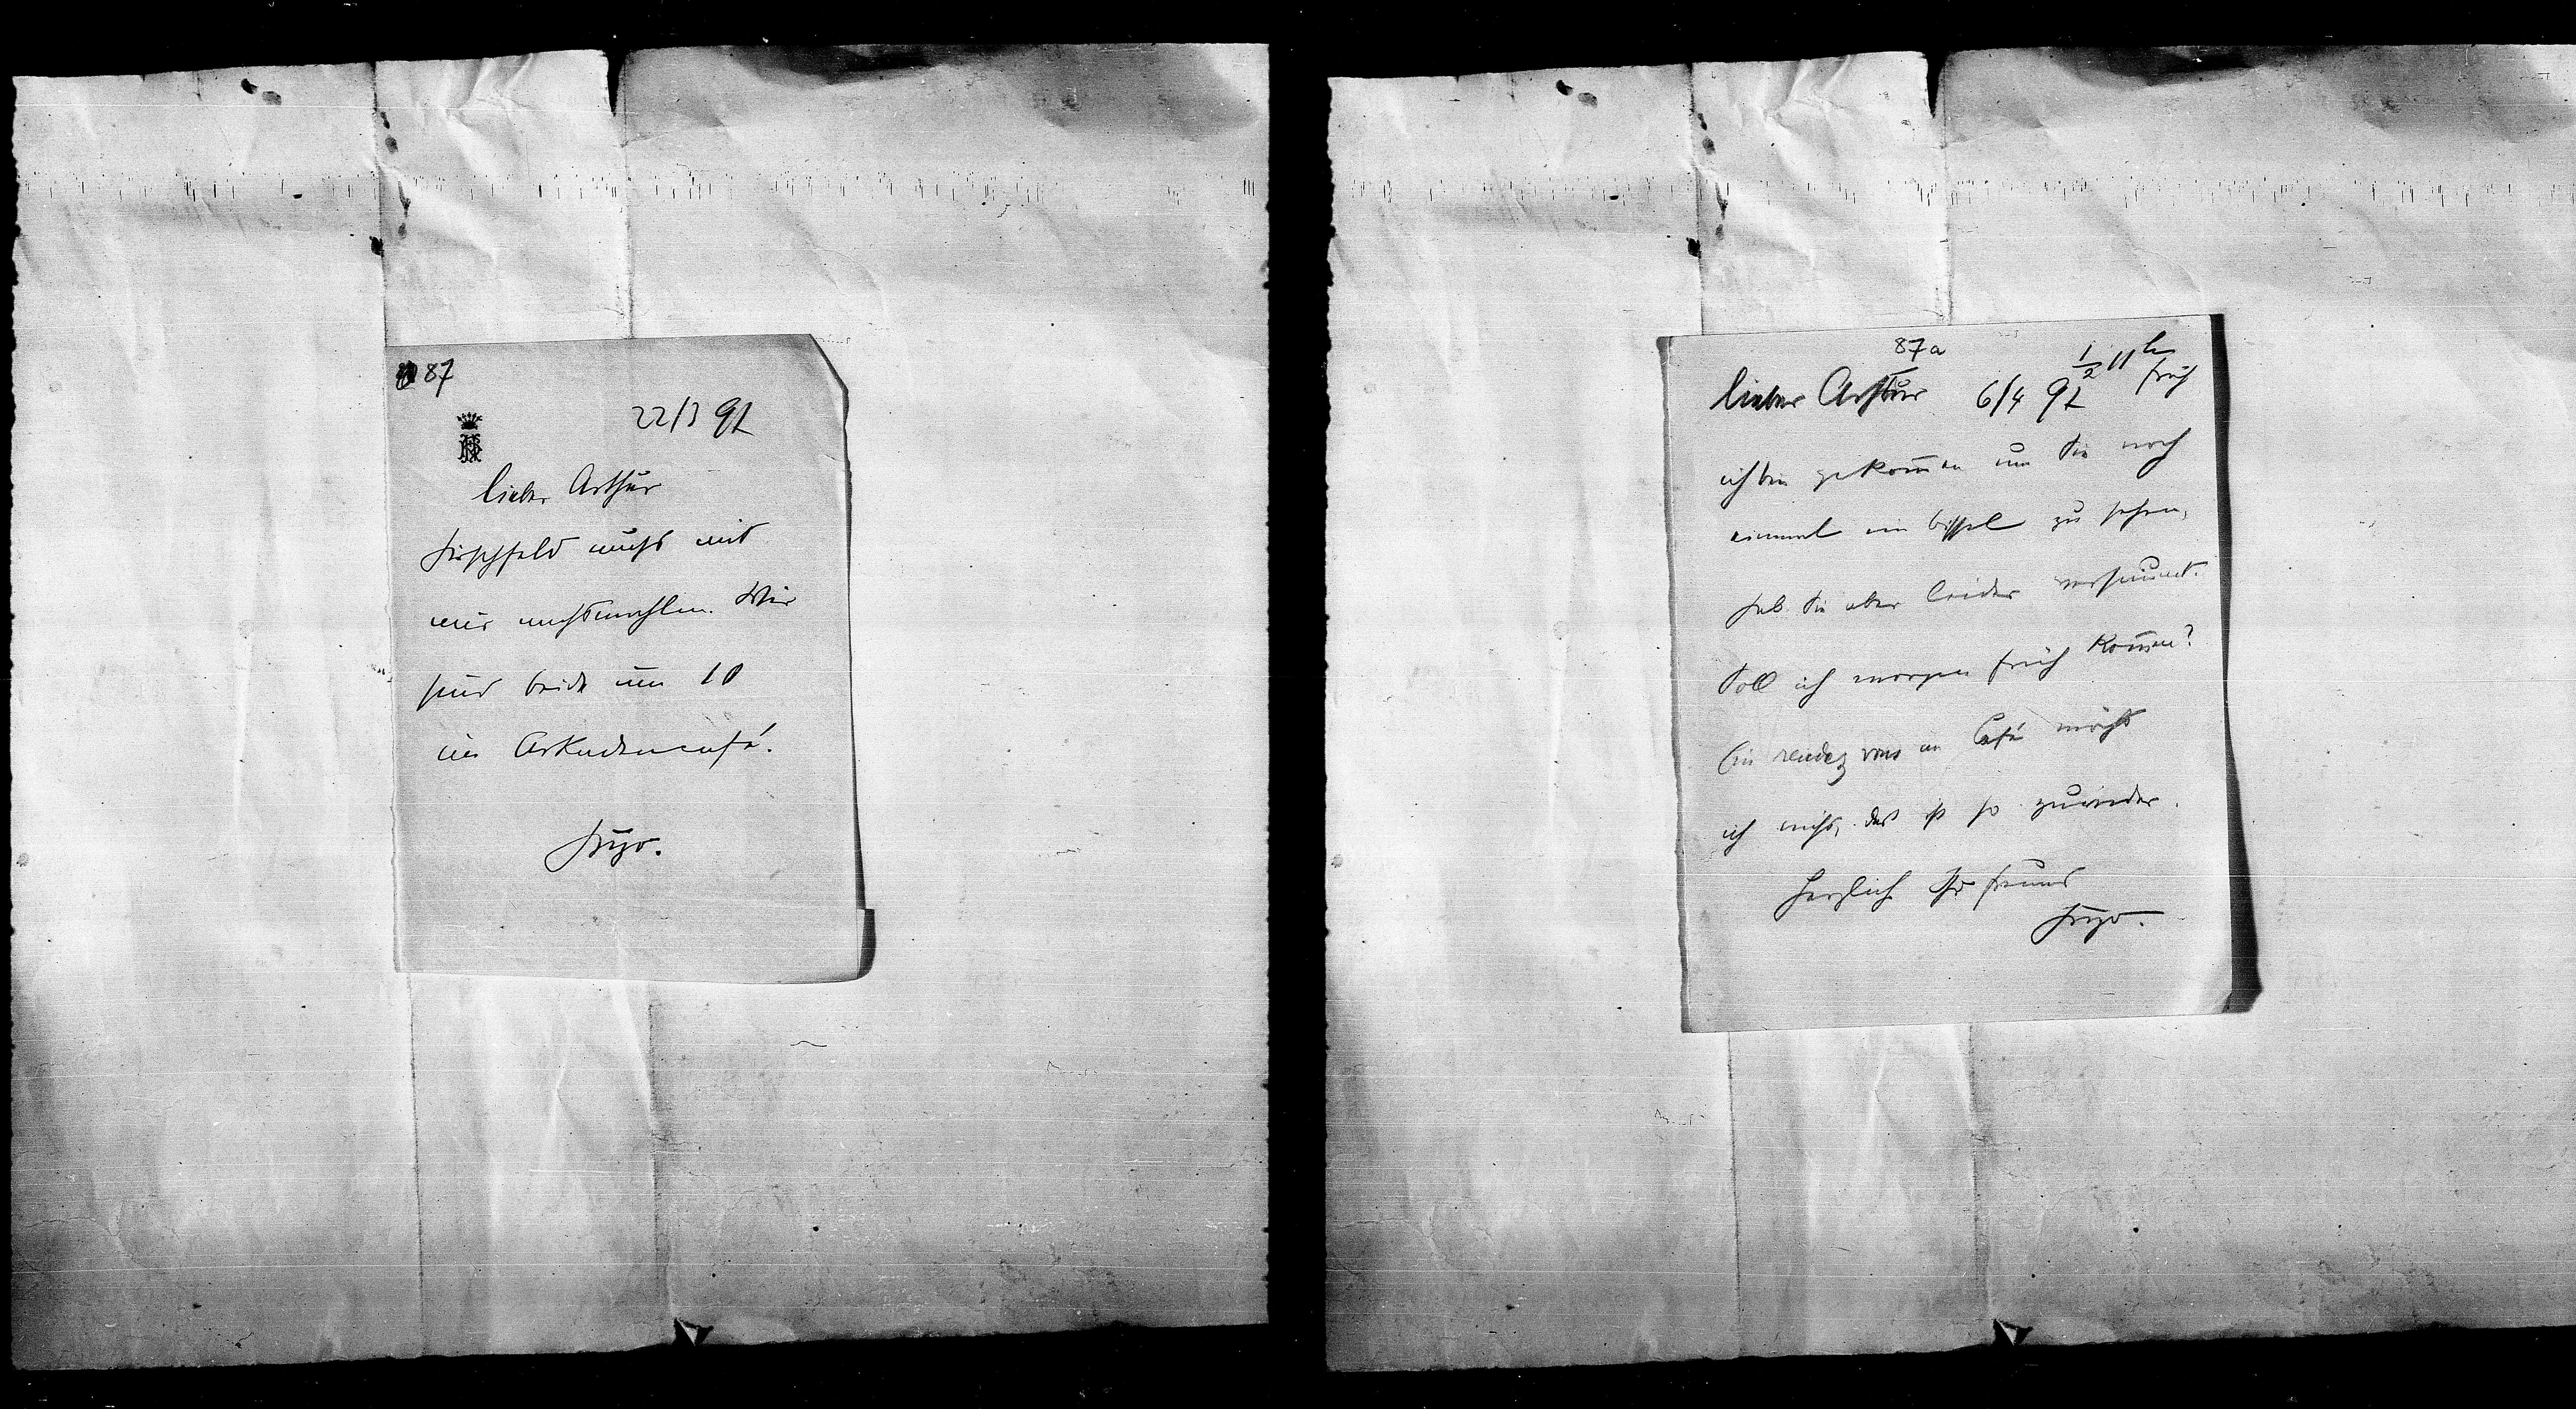 87
22/3 97
lieber Arthur
Hirschfeld muss mit
mir nachtmahlen. Wir
sind beide um 10
im Arkadencafé.
Hugo.
87a
lieber Arthur 6/4 97 1/2 11h früh
ich bin gekom̄en um Sie noch
einmal ein bissel zu sehen,
hab Sie aber leider versäumt.
Soll ich morgen früh kom̄en?
Ein rendez vous im Café möcht
ich nicht, das ist so zuwider.
Herzlich Ihr Freund
Hugo.